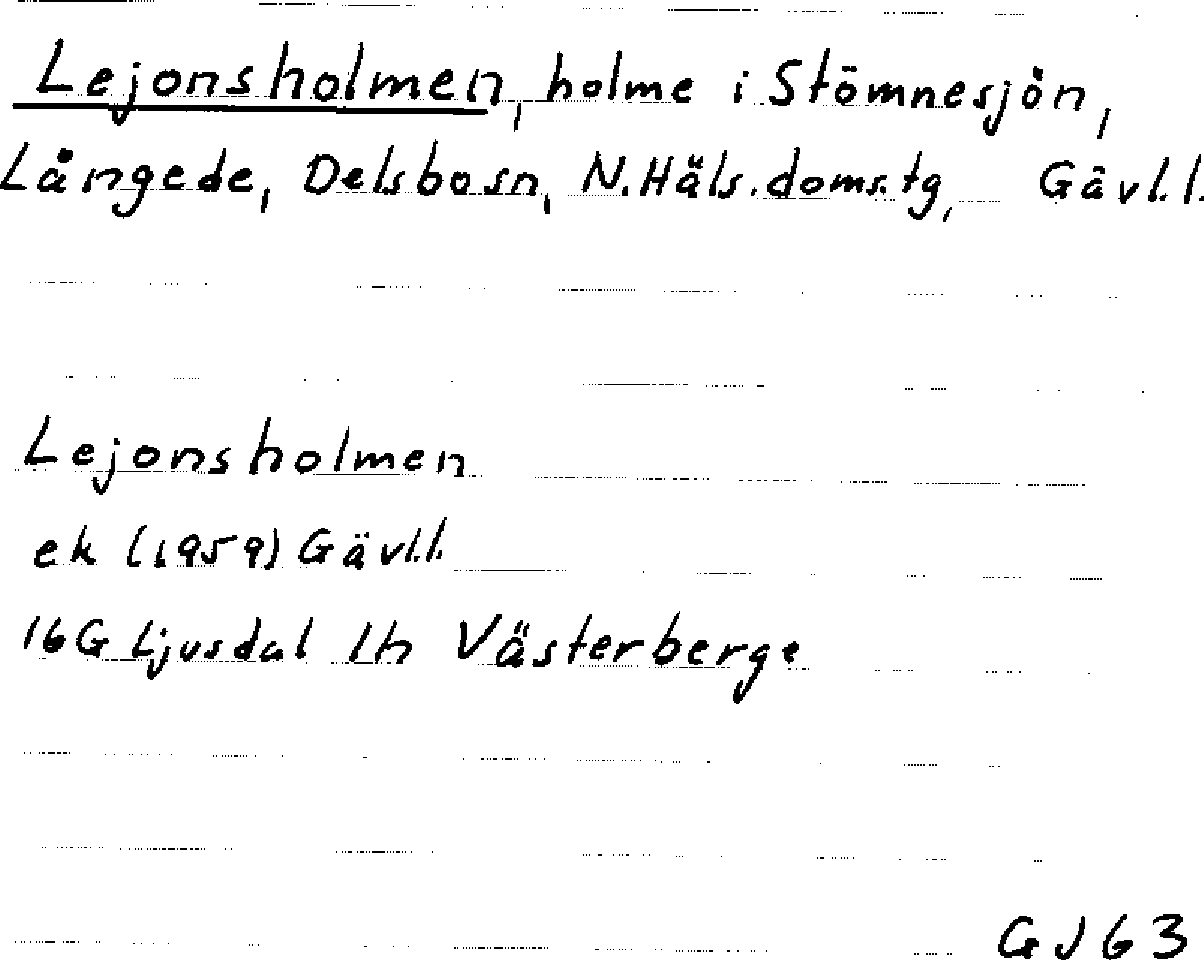 Lejonsholmen, holme i Stömnesjön,
Långede, Delsbosn, N.Häls.doms.tg, Gävl.l.
Lejonsholmen
ek (1959) Gävl.l.
16G Ljusdal 1h Västerberge
GJ63